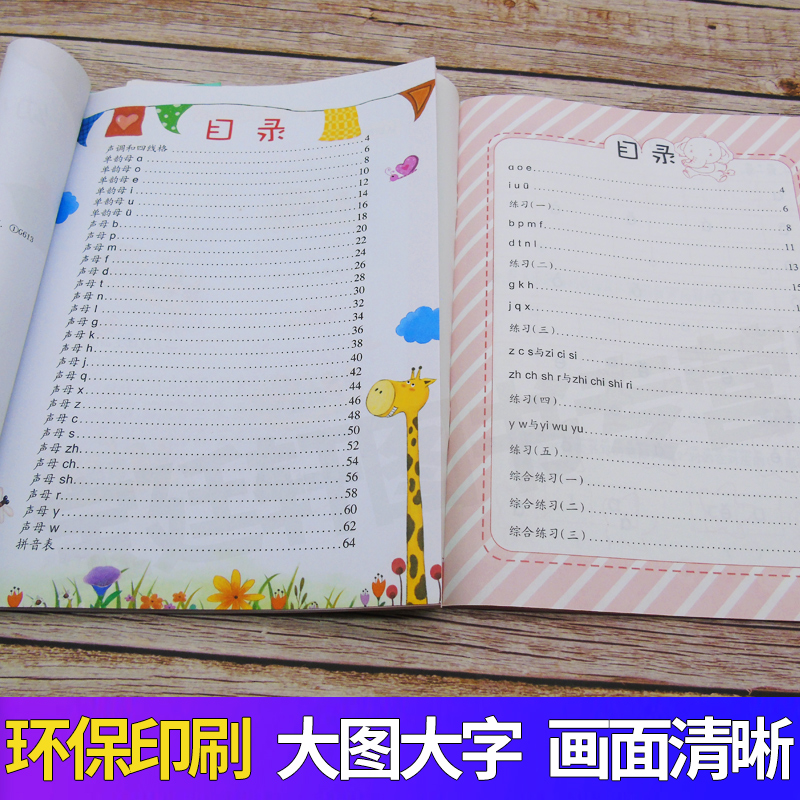 ①G613
目录
声调和四线格 4
单韵母 ɑ 6
单韵母 o 8
单韵母 e 10
单韵母 i 12
单韵母 u 14
单韵母 ü 16
声母 b 18
声母 p 20
声母 m 22
声母 f 24
声母 d 26
声母 t 28
声母 n 30
声母 l 32
声母 g 34
声母 k 36
声母 h 38
声母 j 40
声母 q 42
声母 x 44
声母 z 46
声母 c 48
声母 s 50
声母 zh 52
声母 ch 54
声母 sh 56
声母 r 58
声母 y 60
声母 w 62
拼音表 64
目录
ɑ o e 4
i u ü 6
练习(一) 8
b p m f 11
d t n l 13
练习(二) 15
g k h
j q x
练习(三)
z c s与zi ci si
zh ch sh r与zhi chi shi ri
练习(四)
y w与yi wu yu
练习(五)
综合练习(一)
综合练习(二)
综合练习(三)
环保印刷 大图大字 画面清晰